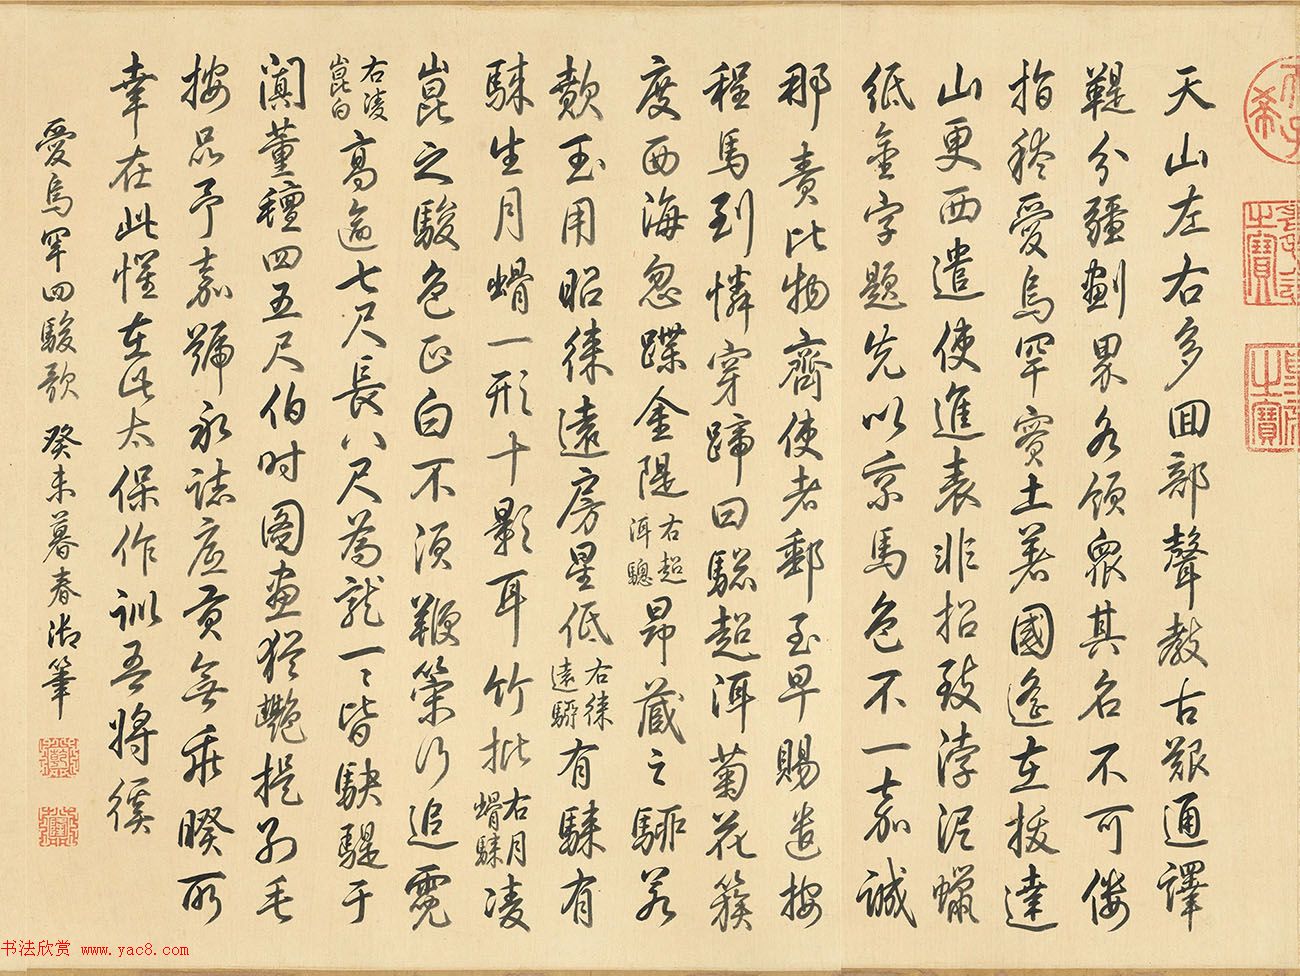 天山左右多回部聲教古艱通譯
鞮分疆劃界各領眾其名不可僂
指稔愛烏罕實土著國遙在拔達
山更西遣使進表非招致浡泥蠟
紙金字題先以京馬色不一嘉誠
那責比物齊使者郵至早賜遣按
程馬到憐穿蹄曰驄超洱菊花簇
度西海忽蹀金隄右超洱驄昴藏之驑若
愸玉用昭徠遠房星低右徠遠驑有騋有
騋生月䯝一形十影耳竹批右月䯝騋凌
崑之駿色正白不須鞭策行追霓
右凌崑白高逾七尺長八尺為龍一一皆駃騠于
闐董氊四五尺伯時圖畫猶艷提別毛
按品予嘉號永誌底貢無乖睽所
幸在此懼在此太保作訓吾將徯
愛烏罕四駿歌 癸未暮春御筆
書法欣賞 www.yac8.com